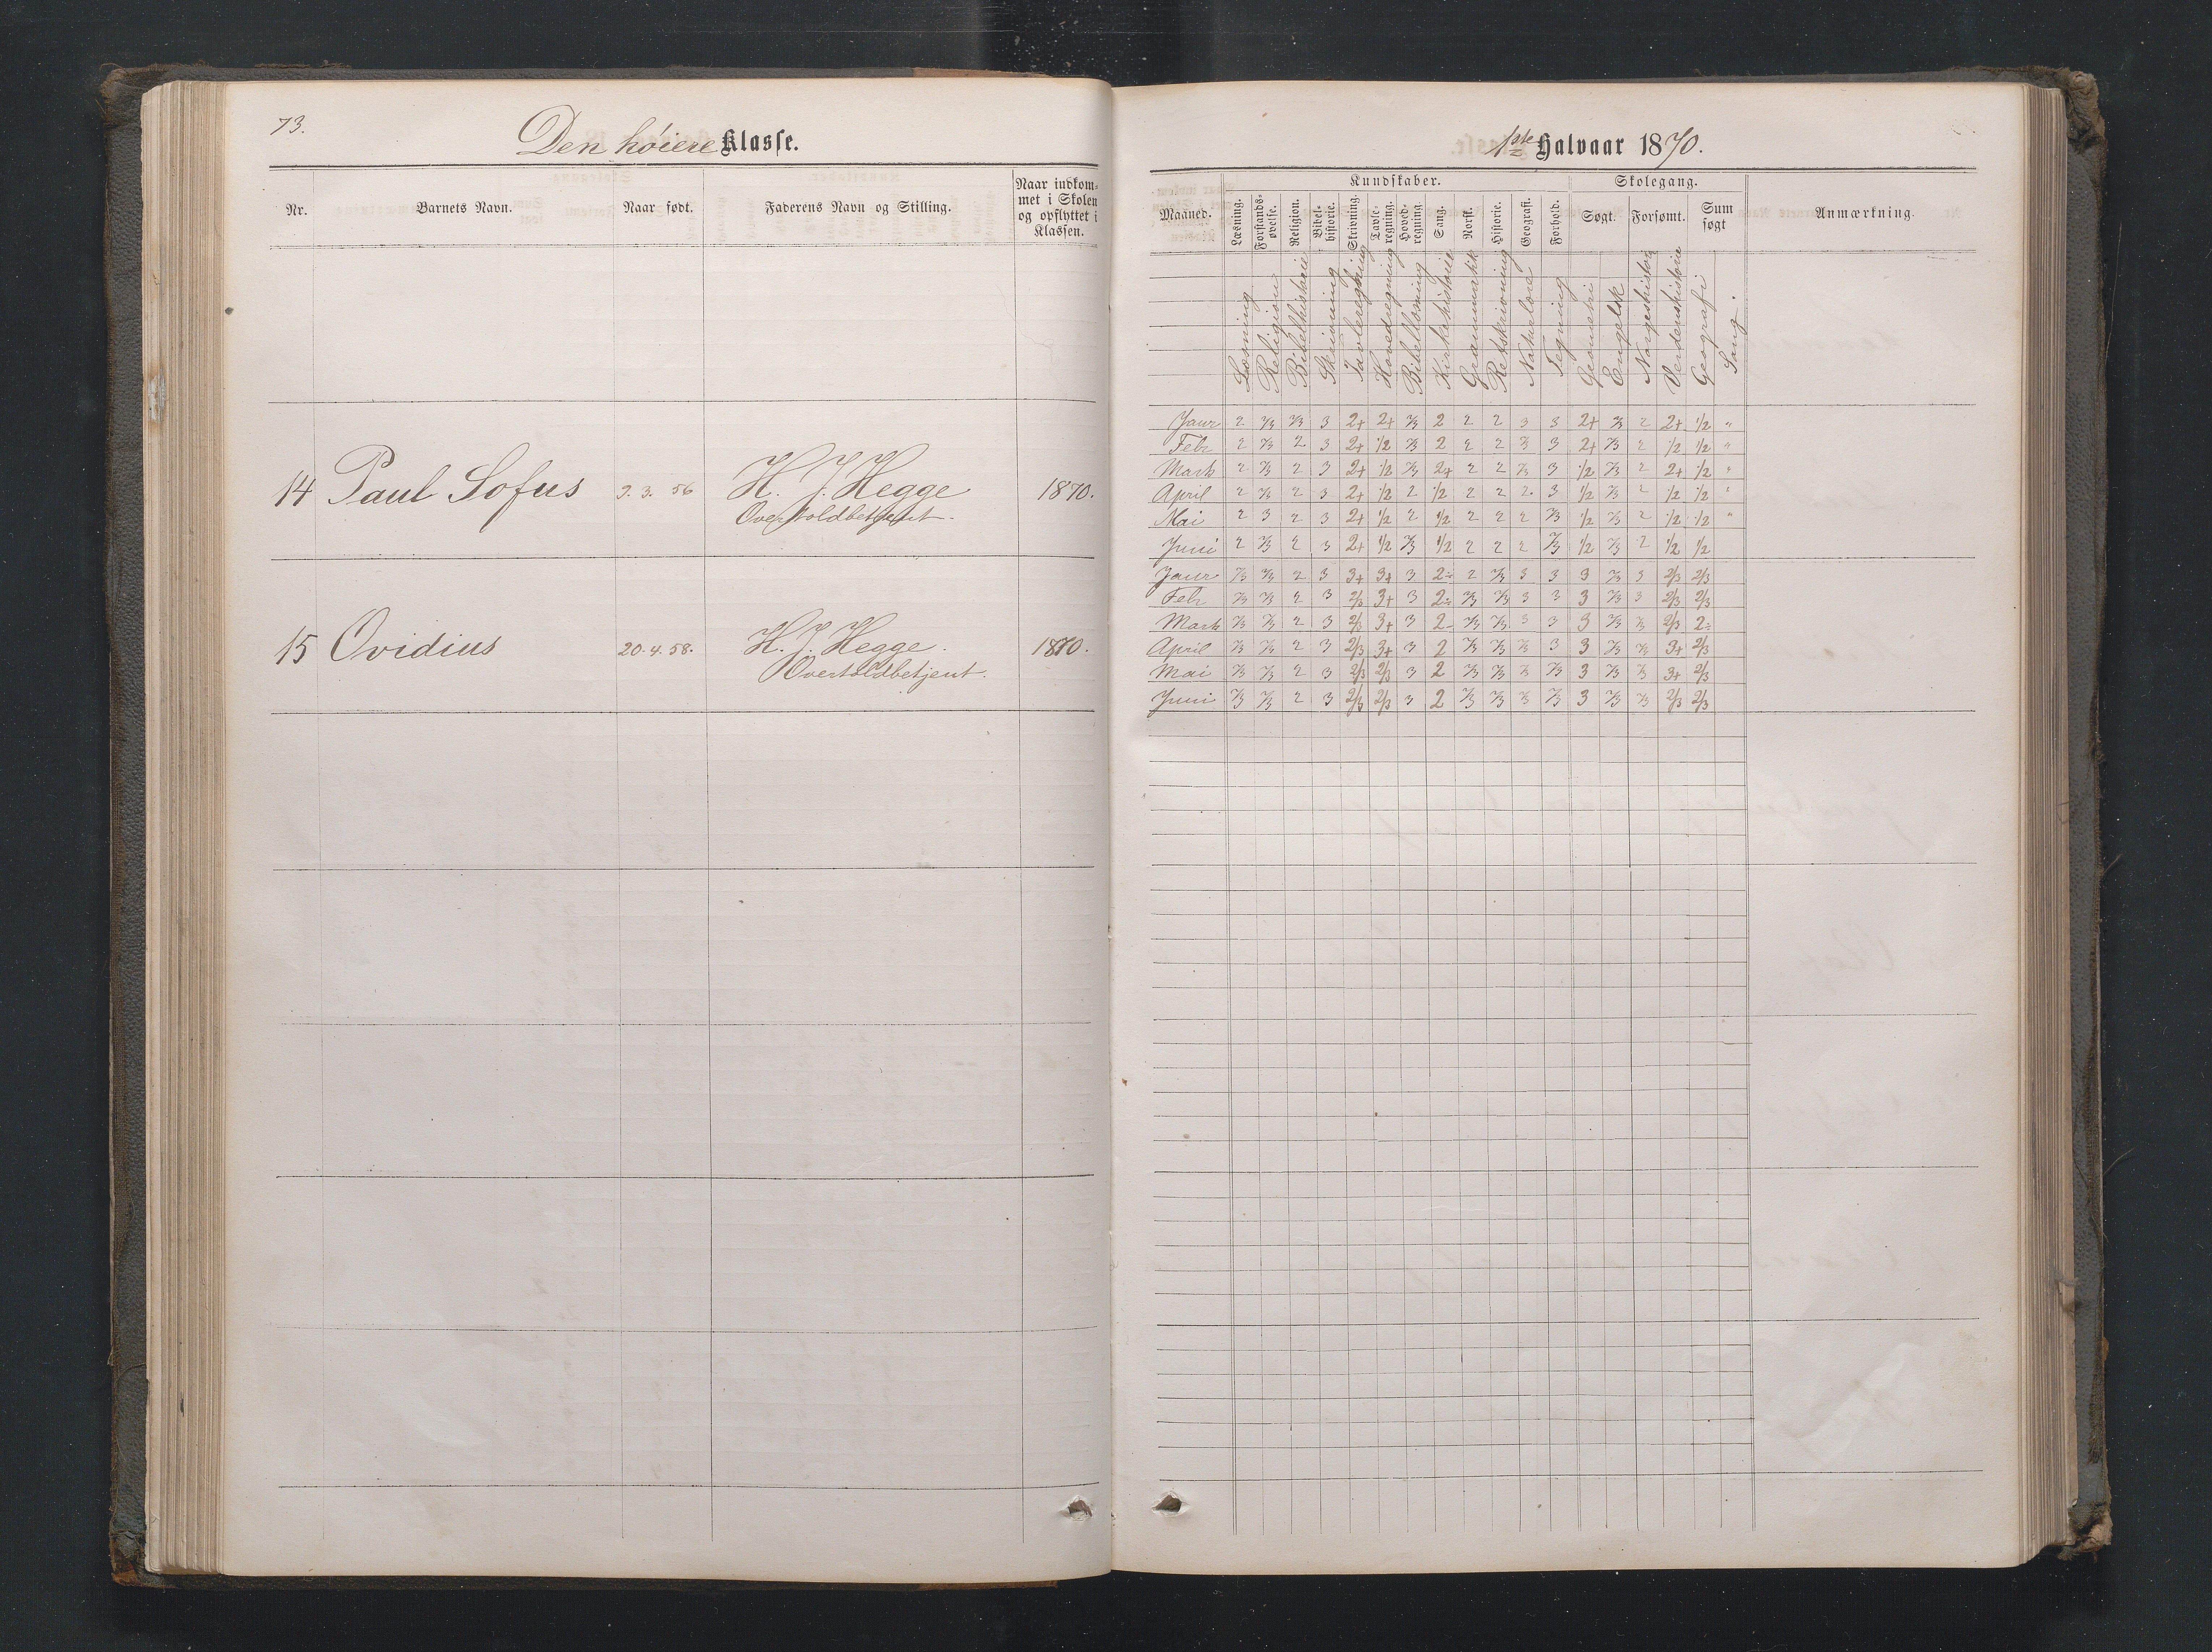 73.
Den høiere Klasse.
Nr.
Barnets Navn.
Naar født.
Faderens Navn og Stilling.
Naar indkom=
met i Skolen
og opflyttet i
Klassen.
14 Paul Sofus 9. 3. 56 H. J. Hegge 1870.
Overtoldbetjent.
15 Ovidius 20. 4. 58. H. J. Hegge. 1870.
Overtoldbetjent.
1ste Halvaar 1870.
Kundskaber. Skolegang.
Maaned.
Læsning.
Forstands-
øvelse.
Religion.
Bibel-
historie.
Skrivning.
Tavle-
regning.
Hoved-
regning.
Sang.
Norsk.
Historie.
Geografi.
Forhold.
Søgt.
Forsømt.
Sum
søgt
Anmærkning.
Læsning
Religion
Bibelhistorie
Skrivning
Tavleregning
Hovedregning
Bibellæsning
Kirkehistorie
Grammatik
Retskrivning
Naturlære
Tegning
Geometri
Engelsk
Norgeshistorie
Verdenshistorie
Geografi
Sang.
Janr 2 2/3 2/3 3 2+ 2+ 2/3 2 2 2 3 3 2+ 2/3 2 2+ 1/2 "
Febr 2 2/3 2 3 2+ 1/2 2/3 2 2 2 2/3 3 2+ 2/3 2 1/2 1/2 "
Marts 2 2/3 2 3 2+ 1/2 2/3 2+ 2 2 2/3 3 1/2 2/3 2 2+ 1/2 "
April 2 2/3 2 3 2+ 1/2 2 1/2 2 2 2 3 1/2 2/3 2 1/2 1/2 "
Mai 2 3 2 3 2+ 1/2 2 1/2 2 2 2 2/3 1/2 2/3 2 1/2 1/2 "
Juni 2 2/3 2 3 2+ 1/2 2/3 1/2 2 2 2 2/3 1/2 2/3 2 1/2 1/2
Janr 2/3 2/3 2 3 3+ 3+ 3 2÷ 2 2/3 3 3 3 2/3 3 2/3 2/3
Febr 2/3 2/3 2 3 2/3 3+ 3 2÷ 2/3 2/3 3 3 3 2/3 3 2/3 2/3
Marts 2/3 2/3 2 3 2/3 3+ 3 2÷ 2/3 2/3 3 3 3 2/3 2/3 2/3 2÷
April 2/3 2/3 2 3 2/3 3+ 3 2 2/3 2/3 2/3 3 3 2/3 2/3 3+ 2/3
Mai 2/3 2/3 2 3 2/3 2/3 3 2 2/3 2/3 2/3 2/3 3 2/3 2/3 3+ 2/3
Juni 2/3 2/3 2 3 2/3 2/3 3 2 2/3 2/3 2/3 2/3 3 2/3 2/3 2/3 2/3